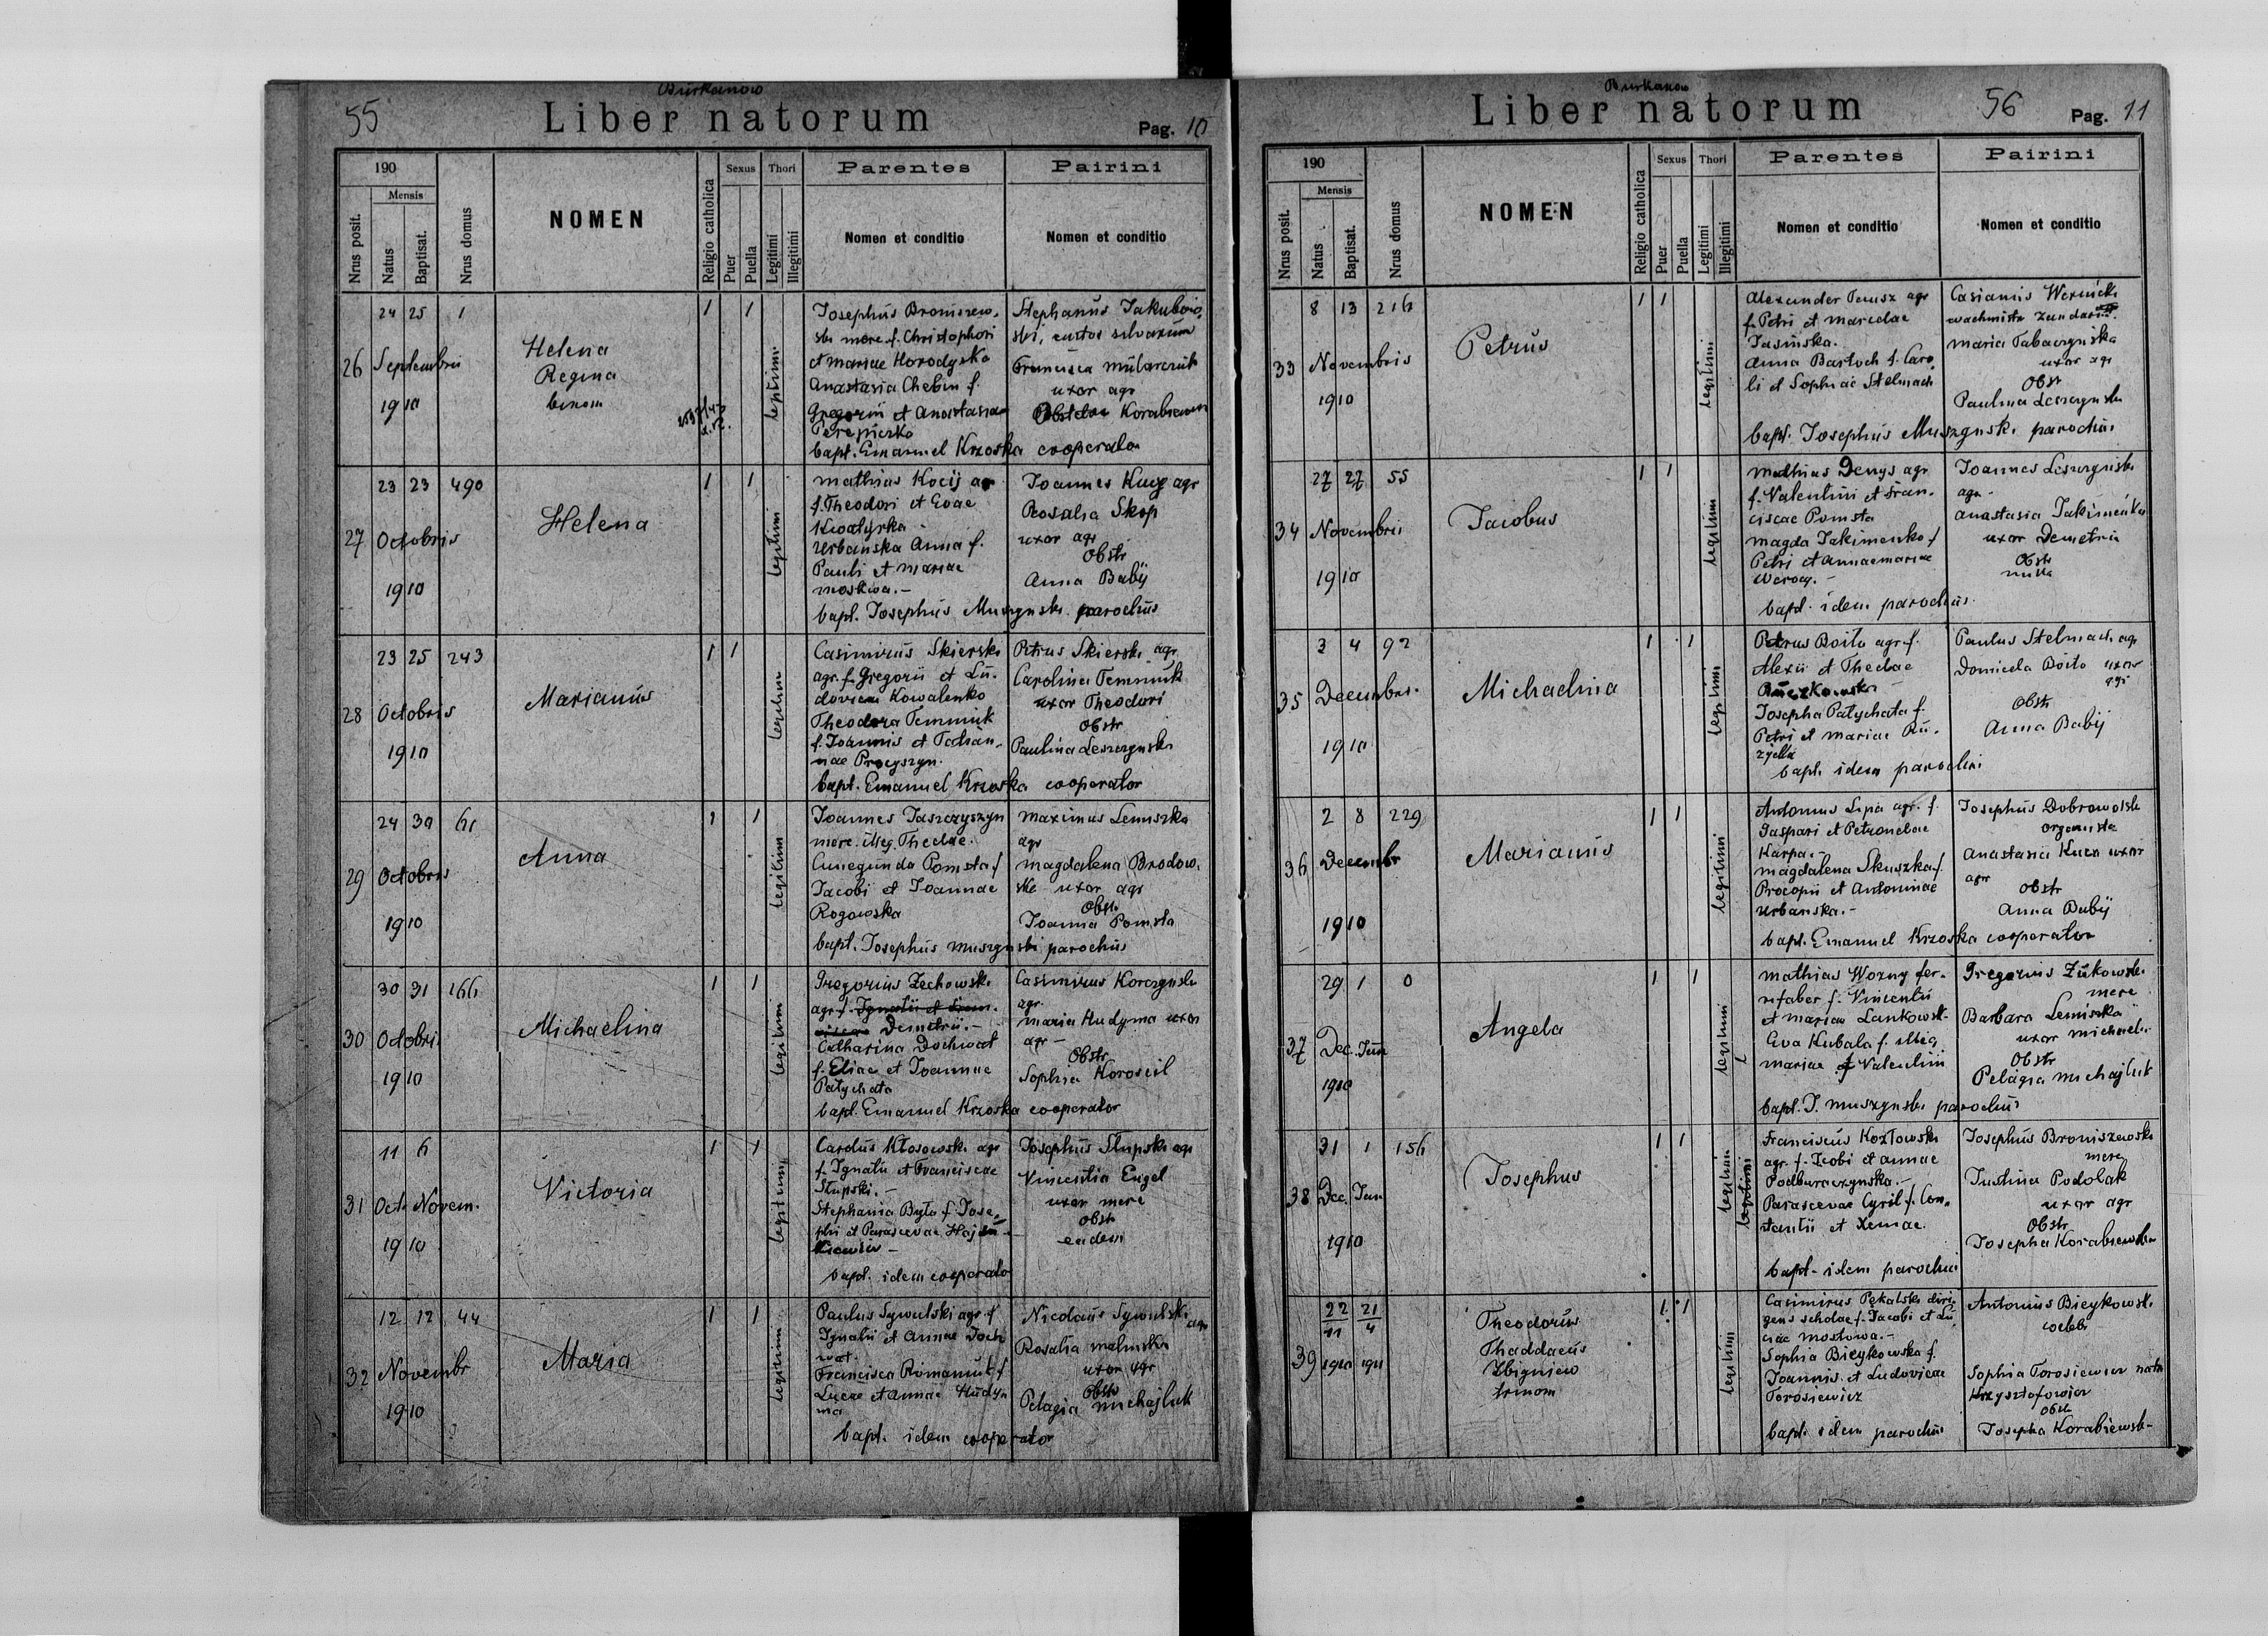 55
Burkanow
Liber natorum
Pag. 10
190
Mensis
Nrus posit.
Natus
Baptisat.
Nrus domus
NOMEN
Religio catholica
Sexus
Puer
Puella
Thori
Legitimi
Illegitimi
Parentes
Nomen et conditio
Pairini
Nomen et conditio
24 25 1
26 Septembris
1910
Helena
Regina
binom
1 1
legitimi
Josephus Broniszew.
ski merc. f. Christophori
et Mariae Horodyska
Anastasia Chebin f.
Gregorii et Anastasiae
Perepiczka
bapt. Emanuel Krzoska cooperator
Stephanus Jakubow.
ski, custos silvarum
Francisca Mularczuk
uxor agr
Korabiewska
23 23 490
27 Octobris
1910
Helena
1 1
legitimi
Mathias Kocij agr
f. Theodori et Evae
Kwatyrka
Urbanska Anna f.
Pauli et Mariae
Moskwa.-
bapt. Josephus Muszynski parochus
Joannes Kucy agr
Rosalia Skop
uxor agr
Obstr
Anna Babij
23 25 243
28 Octobris
1910
Marianus
1 1
legitimi
Casimirus Skierski
agr. f. Gregorii et Lu.
dovicae Kowalenko
Theodora Temniuk
f. Joannis et Tatian.
nae Procyszyn.
bapt. Emanuel Krzoska cooperator
Petrus Skierski agr
Carolina Temniuk
uxor Theodori
Obstr
Paulina Leszczynska
24 30 61
29 Octobris
1910
Anna
1 1
legitimi
Joannes Jaszczyszyn
merc. illeg. Theclae.
Cunegunda Pomsta f
Jacobi et Joannae
Rogowska
bapt. Josephus Muszynski parochus
Maximus Lemiszka
agr
Magdalena Brodow.
ska uxor agr
Obstr
Joanna Pomsta
30 31 166
30 Octobris
1910
Michaelina
1 1
legitimi
Gregorius Zechowski
agr. f. Ignatii et Fran.
ciscae Demetrii.-
Catharina Dochwat
f. Eliae et Joannae
Patychata
bapt. Emanuel Krzoska cooperator
Casimirus Korczynski
agr.
Maria Hudyma uxor
agr -
Obstr
Sophia Koroscil
11 6
31 Oct. Novem.
1910
Victoria
1 1
legitimi
Carolus Kłosowski agr
f. Ignatii et Franciscae
Słupski.-
Stephania Było f. Jose.
phi et Parascevae Hajdu
bapt. idem cooperator
Josephus Słupski agr
Vincentia Engel
uxor merc
obstr
eadem
12 12 44
32 Novembr
1910
Maria
1 1
legitimi
Paulus Sywulski agr. f
Ignatii et Annae Doch
wat.
Francisca Romaniuk f
Lucae et Annae Hudy
ma
bapt. idem cooperator
Nicolaus Sywulski
agr
Rosalia Malinska
uxor agr
Obstr
Pelagia Michajluk
Burkanow
Liber natorum
56
Pag. 11
190
Mensis
Nrus posit.
Natus
Baptisat.
Nrus domus
NOMEN
Religio catholica
Sexus
Puer
Puella
Thori
Legitimi
Illegitimi
Parentes
Nomen et conditio
Pairini
Nomen et conditio
8 13 216
33 Novembris
1910
Petrus
1 1
legitimi
Alexander Penusz agr
f. Petri et Maridae
Jasinska.
Anna Bartoch f. Caro.
li et Sophiae Stelmach
bapt. Josephus Muszynski parochus
Casianus Wernicki
wachmistr
Maria Tabaczynska
uxor agr
Obst
Paulina Leszczynska
27 27 55
34 Novembris
1910
Jacobus
1 1
legitimi
Mathias Denys agr
f. Valentini et Fran.
ciscae Pomsta
Magda Jakimenko f
Petri et Annaemariae
bapt. idem parochus
Joannes Leszczynski
agr.
Anastasia Jakimenko
uxor Demetrii
Obstr
nulla
3 4 92
35 Decembris.
1910
Michaelina
1 1
legitimi
Petrus Boito agr. f.
Alexii et Theclae
Josepha Patychata f.
Petri et Mariae Ru.
zycka
bapt. idem parochus
Paulus Stelmach agr
Domicela Boito uxor
agr
Obstr
Anna Babij
2 8 229
36 Decembr
1910
Marianus
1 1
legitimi
Antonius Lipa agr. f.
Gaspari et Petronelae
Karpa.-
Magdalena Skuszka f.
Procopii et Antoninae
Urbanska.-
bapt. Emanuel Krzoska cooperator
Josephus Dobrowolski
organista
Anastasia Kuca uxor
agr
obstr
Anna Babij
29 1 0
37 Dec. Jan
1910
Angela
1 1
legitimi
Mathias Wozny fer.
rifaber f. Vincentii
et Mariae Lankowsk-
Eva Kubala f. illeg.
Mariae f Valentini
bapt. J. Muszynski parochus
Gregorius Zukowski
merc
Barbara Lemiszka
uxor Michaeli
Obstr
Pelagia Michajluk
31 1 156
38 Dec. Jan
1910
Josephus
1 1
legitimi
legitimi
Franciscus Kozłowski
agr. f. Jcobi et Annae
Podburaczynska.-
Parascevae Cyril f. Con.
stantii et Xeniae.
bapt. idem parochus
Josephus Broniszewski
merc
Justina Podolak
uxor agr
Obstr
Josepha Korabiewska
22/11 21/4
39 1910 1911
Theodorus
Thaddaeus
Zbigniew
trinom
1 1
legitimi
Casimirus Pękalski diri.
gens scholae f. Jacobi et Lu
ciae Mostowa.-
Sophia Bieykowska f.
Joannis et Ludovicae
Torosiewicz
bapt. idem parochus
Antonius Bieykowski
coeleb
Sophia Torosiewicz nata
Krzysztofowicz
obst
Josepha Korabiewsk-